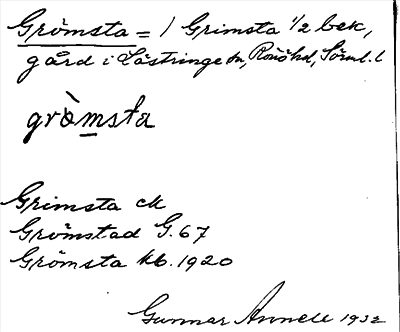 Grömsta = 1 Grimsta 1/2 bek,
gård i Lästringe sn, Rönö hd, Sörml. l
gròmsta
Grimsta ck
Grömstad G. 67
Grömsta kb. 1920
Gunnar Annell 1932